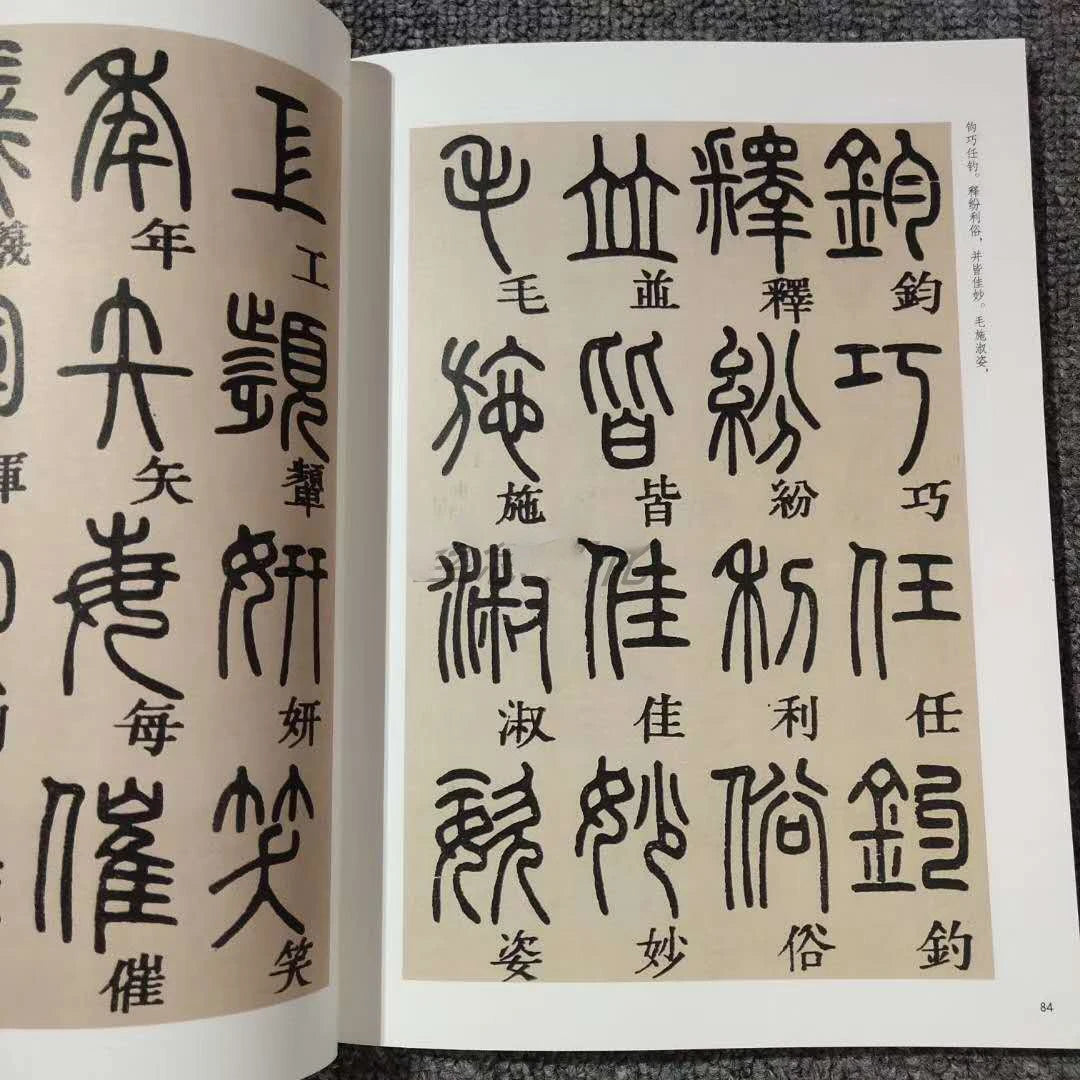 钧巧任钓。释纷利俗，并皆佳妙。毛施淑姿，
鈞巧任釣
釋紛利俗
並皆佳妙
毛施淑姿
84
工顰妍笑
年矢每催